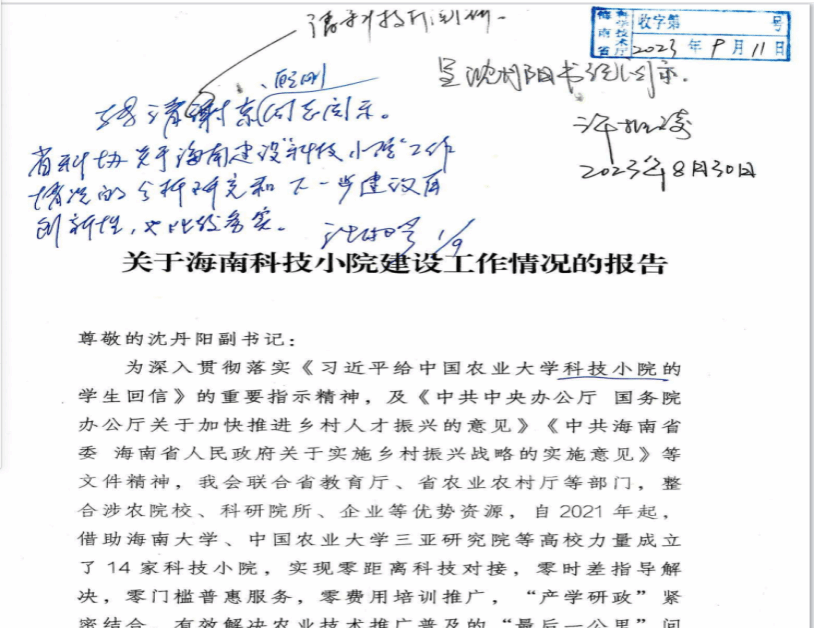 请科技厅阅研。
海南省科学技术厅
收字第 号
2023年9月11日
呈沈丹阳书记阅示。
2023年8月30日
请谢京同志阅示。
省科协关于海南建设"科技小院"工作
情况的分析研究和下一步建议有
创新性，也比较务实。
1/9
关于海南科技小院建设工作情况的报告
尊敬的沈丹阳副书记：
为深入贯彻落实《习近平给中国农业大学科技小院的
学生回信》的重要指示精神，及《中共中央办公厅 国务院
办公厅关于加快推进乡村人才振兴的意见》《中共海南省
委 海南省人民政府关于实施乡村振兴战略的实施意见》等
文件精神，我会联合省教育厅、省农业农村厅等部门，整
合涉农院校、科研院所、企业等优势资源，自 2021 年起，
借助海南大学、中国农业大学三亚研究院等高校力量成立
了 14 家科技小院，实现零距离科技对接，零时差指导解
决，零门槛普惠服务，零费用培训推广，“产学研政”紧
密结合，有效解决农业技术推广普及的“最后一公里”问